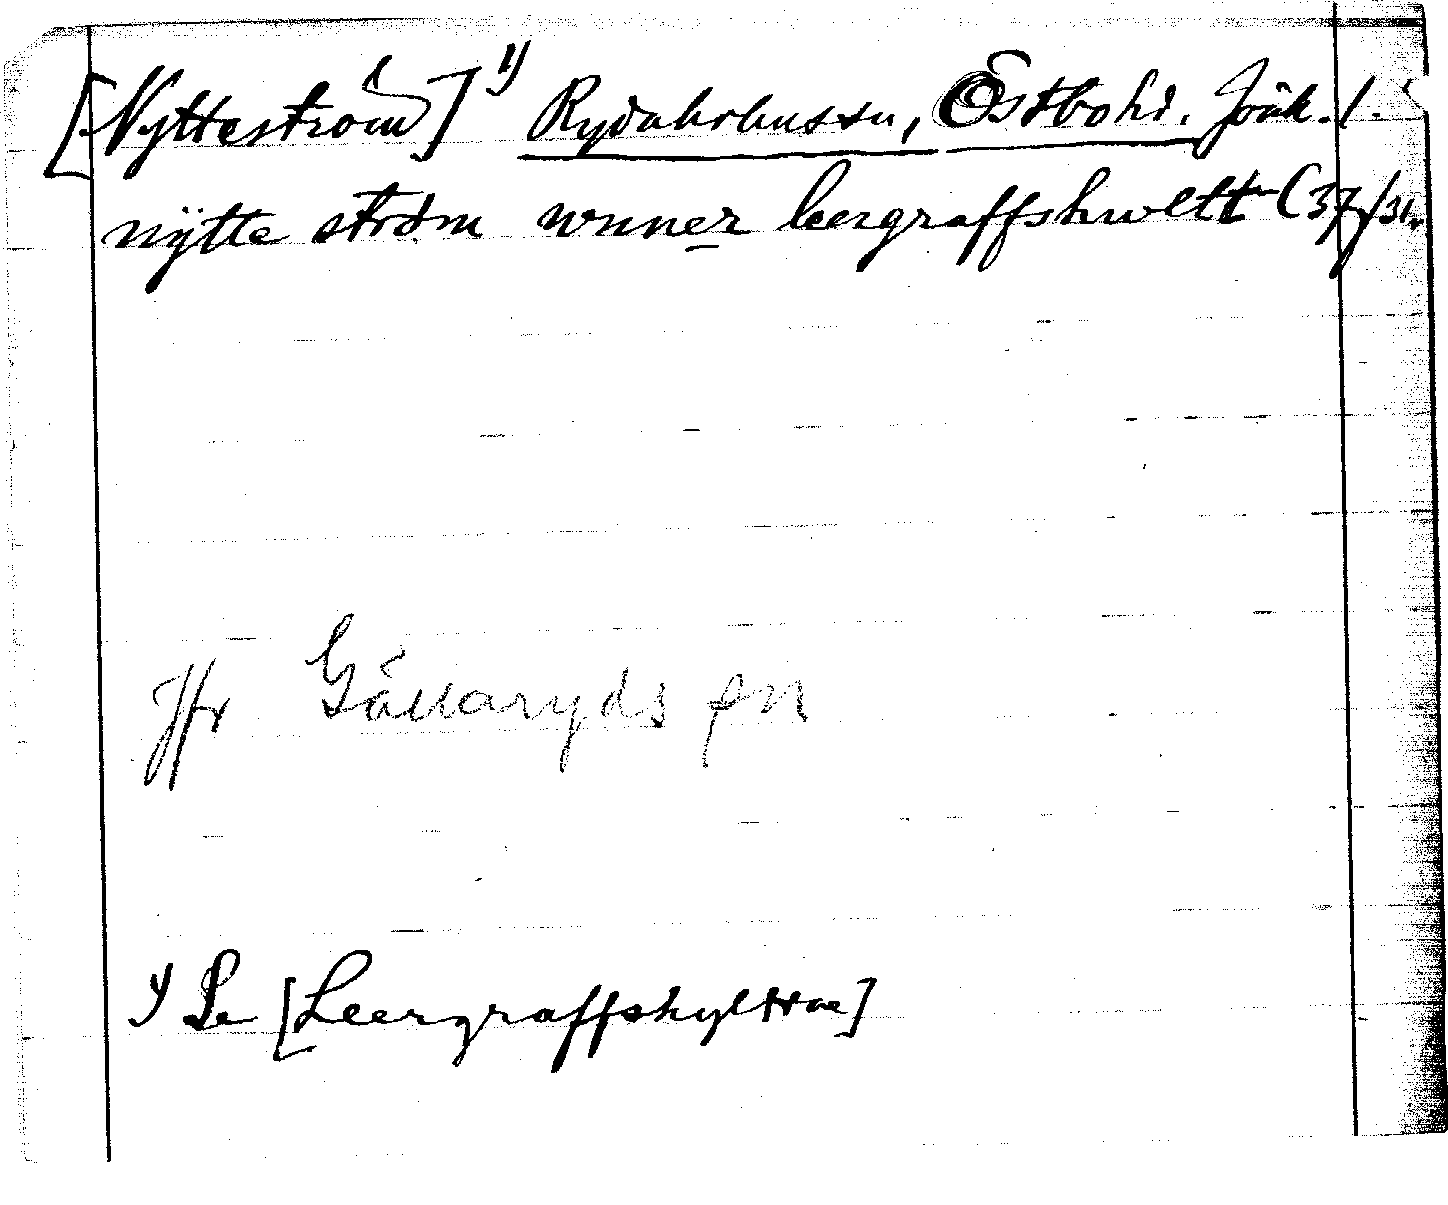 [Nytteström] 1) Rydaholms sn, Östbo hd. Jönk. l.
nÿtte ström wnner leergraffshwltt (37/31.
Jfr Gällaryds sn
1) Se [Leergraffshyltae]